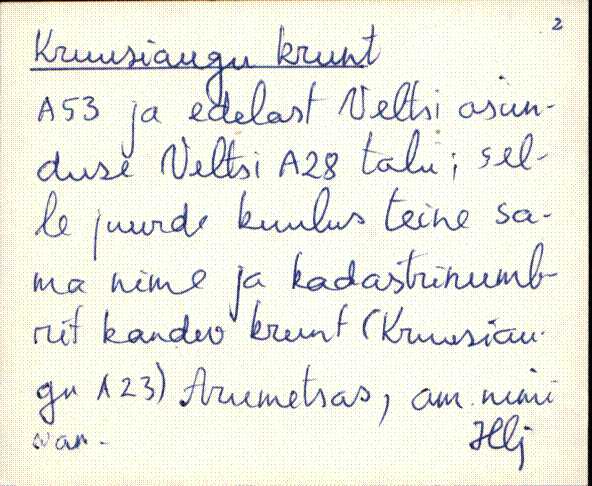 2
Kruusiaugu krunt
A53 ja edelast Veltsi asun-
duse Veltsi A28 talu; sel-
le juurde kuulus teine sa-
ma nime ja kadastrinumb-
rit kandev krunt (Kruusiau-
gu A23) Arumetsas, am. nimi
van.